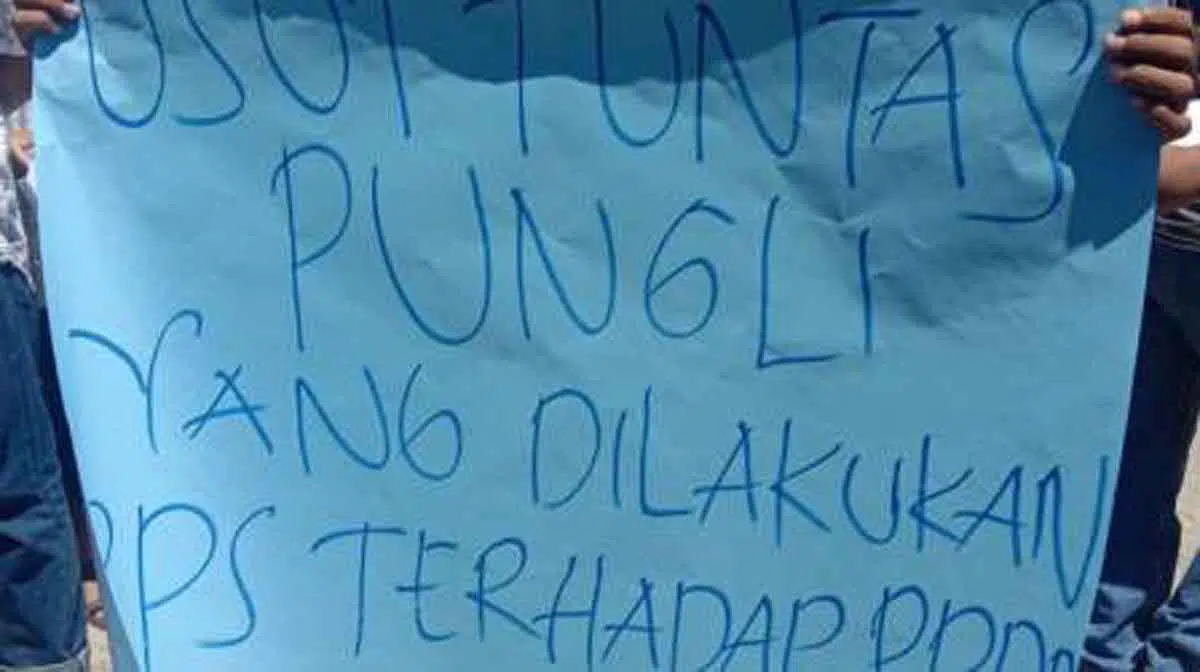 USUT TUNTAS
PUNGLI
YANG DILAKUKAN
PPS TERHADAP